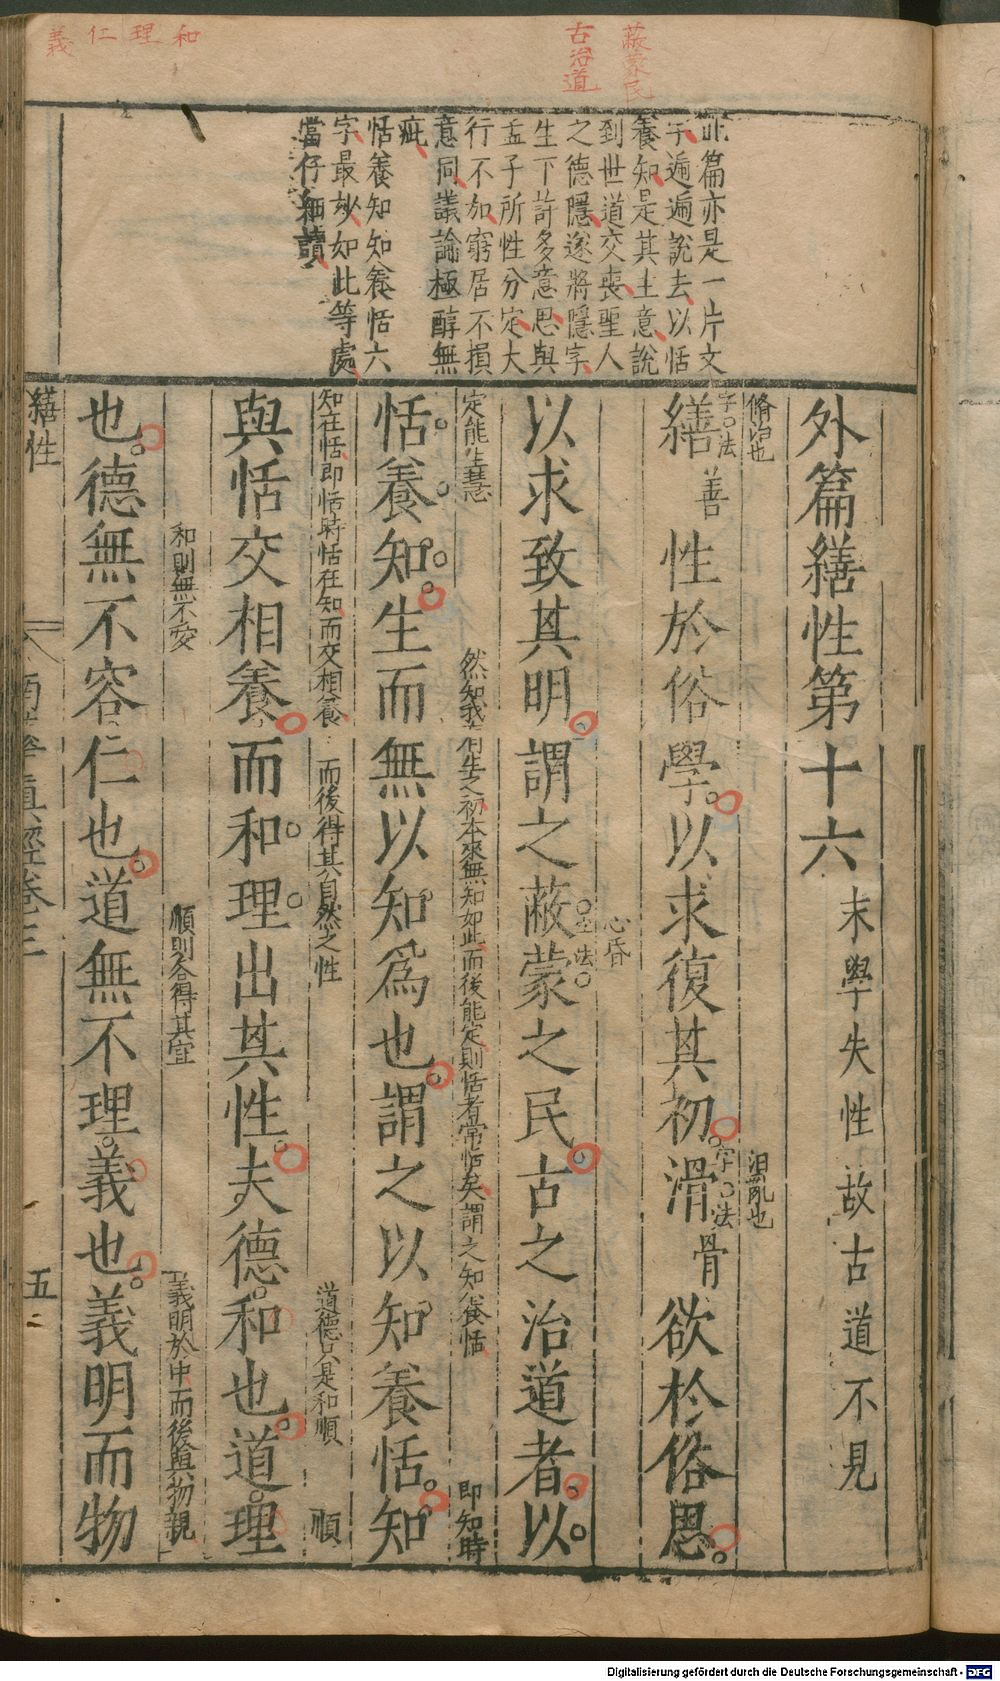 蔽蒙民
古治道
和理仁義
此篇亦是一片文
字遍遍說去以恬
養知是其主意說
到世道交喪聖人
之德隱遂將隱字
生下許多意思與
孟子所性分定大
行不加窮居不損
意同議論極醇無
疵
恬養知知養恬六
字最妙如此等處
當仔細讀
外篇繕性第十六 末學失性故古道不見
脩治也 汩亂也
字法 字法
繕善性於俗學以求復其初滑骨欲於俗思
心昏
字法
以求致其明謂之蔽蒙之民古之治道者以
定能生慧 然知我有生之初本來無知如此而後能定則恬者常恬矣謂之知養恬 即知時
恬養知生而無以知爲也謂之以知養恬知
知在恬即恬時恬在知而交相養 而後得其自然之性 道德只是和順 順
與恬交相養而和理出其性夫德和也道理
和則無不安 順則各得其宜 義明於中而後與物親
也德無不容仁也道無不理義也義明而物
繕性 南華真經卷三 五
Digitalisierung gefördert durch die Deutsche Forschungsgemeinschaft - DFG